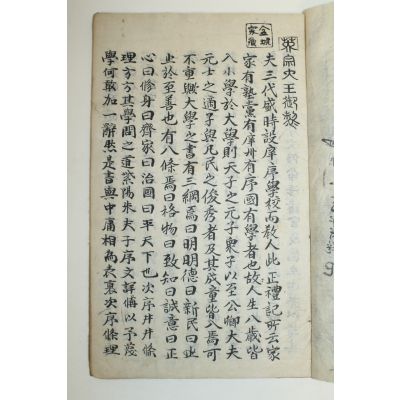 英宗大王御製
夫三代盛時設庠序學校而教人此正禮記所云家
家有塾黨有庠州有序國有學者也故人生八歲皆
入小學於大學則天子之元子衆子以至公卿大夫
元士之適子與凡民之俊秀者及其成童皆入焉可
不重歟大學之書有三綱焉曰明明德曰新民曰止
止於至善也有八條焉曰格物曰致知曰誠意曰正
心曰修身曰齊家曰治國曰平天下也次序井井條
理方方其學問之道紫陽朱夫子序文詳備以予蔑
學何敢加一辭然是書與中庸相為表裏次序條理